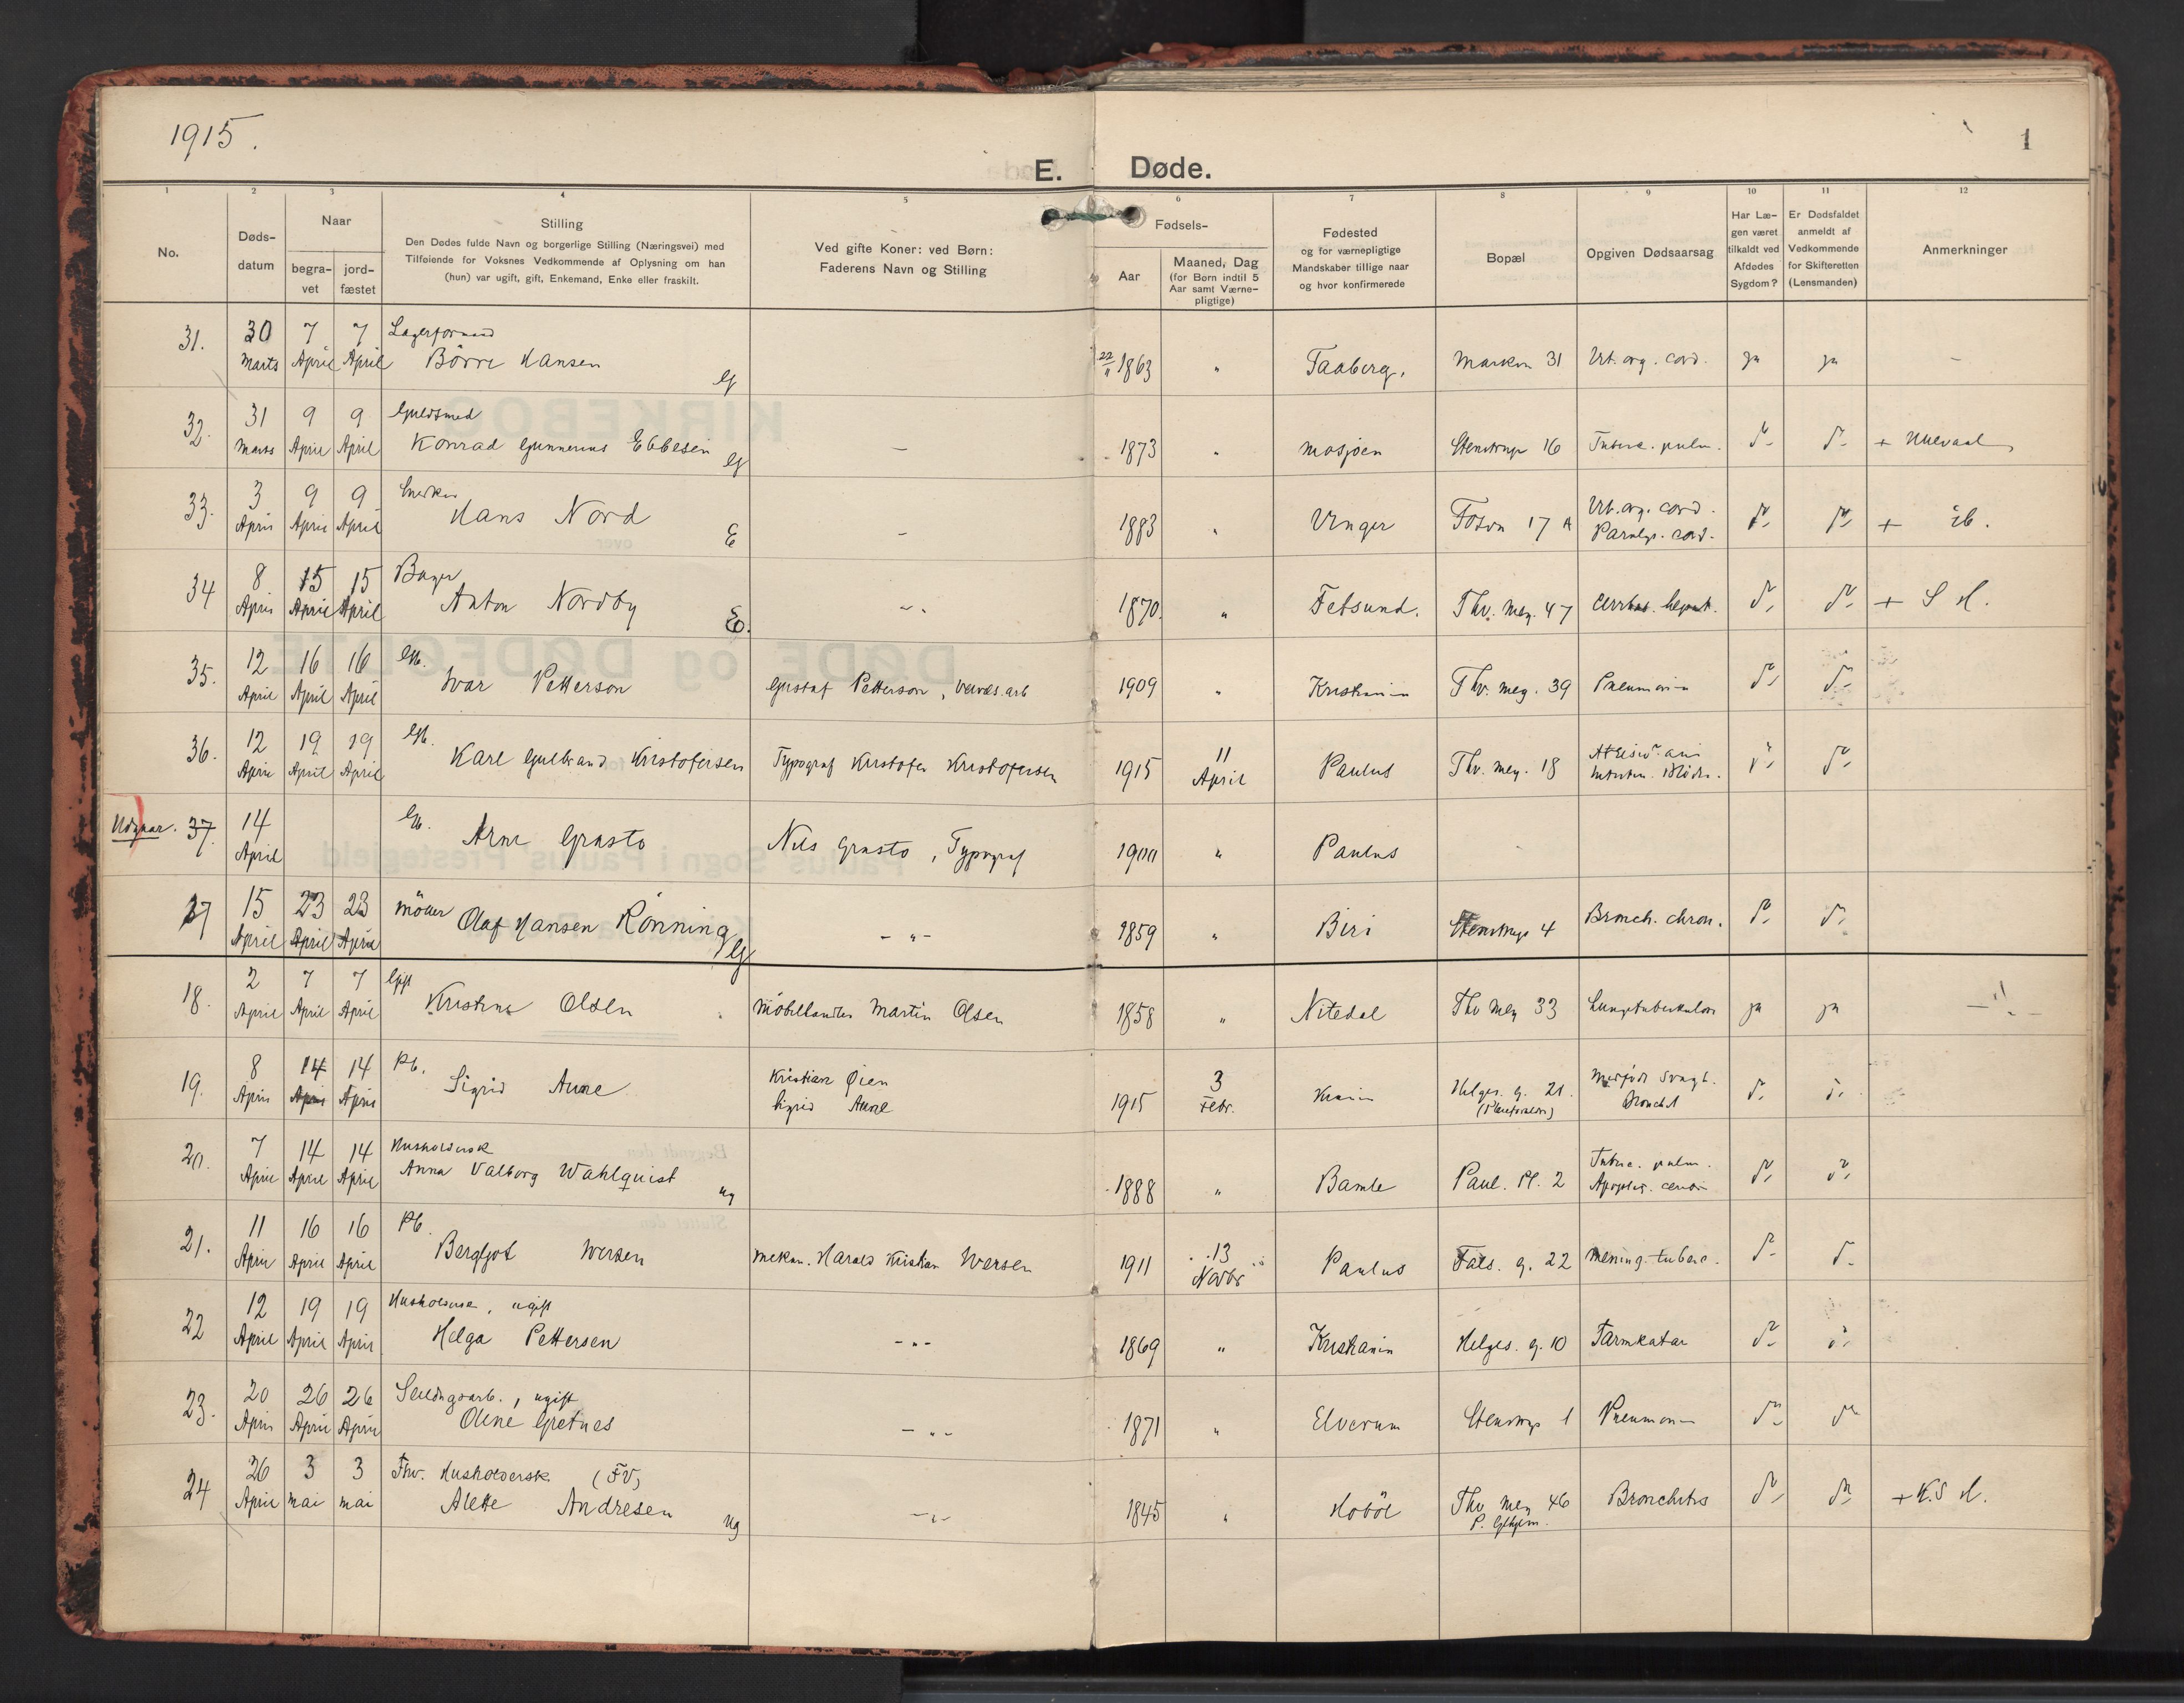 1915.
1
E. Døde.
1 2 3 4 5 6 7 8 9 10 11 12
No.
Døds-
datum
Naar
begra-
vet
jord-
fæstet
Stilling
Den Dødes fulde Navn og borgerlige Stilling (Næringsvei) med
Tilføiende for Voksnes Vedkommende af Oplysning om han
(hun) var ugift, gift, Enkemand, Enke eller fraskilt.
Ved gifte Koner: ved Børn:
Faderens Navn og Stilling
Fødsels-
Aar
Maaned, Dag
(for Børn indtil 5
Aar samt Værne-
pligtige)
Fødested
og for værnepligtige
Mandskaber tillige naar
og hvor konfirmerede
Bopæl
Opgiven Dødsaarsag
Har Læ-
gen været
tilkaldt ved
Afdødes
Sygdom?
Er Dødsfaldet
anmeldt af
Vedkommende
for Skifteretten
(Lensmanden)
Anmerkninger
31. 30 7 7 Lagerformand
Marts April April Börre Hansen G 22/11 1863 " Taaberg. Marken 31 Vit. org. cord. ja ja -
32. 31 9 9 Guldsmed
Marts April April Konrad Gunnerius Ebbesen G - 1873 " Mosjøen Stenstrups 16 Tuberc. pulm. + Ullevaal
33. 3 9 9 Snedker
April April April Hans Nord E - 1883 " Unger 17 A Vit. org. cord.
+ ib.
34 8 15 15 Bager
April April April Anton Nordby E. - 1870 " Fetsund. Thv. Mey. 47 + S H.
35. 12 16 16 Gb.
April April April Ivar Petterson Gustaf Petterson, 1909 " Kristiania Thv. mey. 39 Pneumonia
36. 12 19 19 Gb.
April April April Karl Gulbrand Kristofersen Typograf Kristofer Kristofersen 1915 11 April Paulus Thv. mey. 18
37. 14 Gb.
April Arne Grasto Nils Grasto, Typograf 1900 " Paulus
37 15 23 23 Möller
April April April Olaf Hansen Rönning G - " - 1859 " Biri Stenstrups 4 Bronch. chron.
18. 2 7 7 Gift
April April April Kristine Olsen Möbelhandler Martin Olsen 1858 " Nitedal Thv Mey 33 Lungetuberkulose ja ja
19. 8 14 14 Pb.
April April April Sigrid Aune Kristian Øien
Sigrid Aune 1915 3 Febr. Kr.ania Helges. g. 21.
20. 7 14 14 Husholdersk
April April April Anna Valborg Wahlquist ug 1888 " Bamle Paul. Pl. 2 Tuberc. pulm.
21. 11 16 16 Pb.
April April April Bergljot Iversen Mekan. Harald Kristian Iversen 1911 13 Novbr Paulus Fals. g. 22 Mening. tuberc.
22 12 19 19 Husholderske, ugift
April April April Helga Pettersen - " - 1869 " Kristiania Helges. g. 10 Tarmkatar
23. 20 26 26 ugift
April April April Oline Gretnes - " - 1871 " Elverum Stenstrups 1 Pneumonia
24 26 3 3 Fhv. Husholdersk. (FV)
April mai mai Alette Andresen ug - " - 1845 " Hobøl Thv Mey 46 Bronchitis + K.S H.